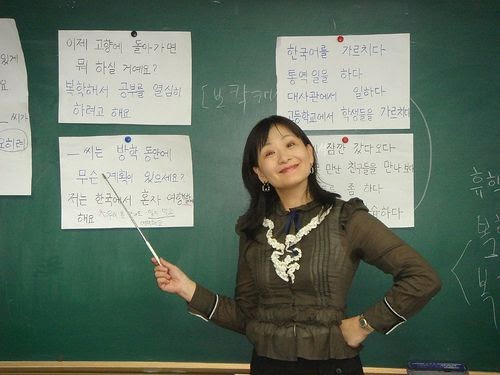 있게
요.
씨가
요히려
이제 고향에 돌아가면
뭐 하실 거예요?
복학해서 공부를 열심히
하려고 해요
씨는 방학 동안에
무슨 계획이 있으세요?
저는 한국에서 혼자 여행
해요
한국어를 가르치다
통역 일을 하다
대사관에서 일하다
고등학교에서 학생들을 가르치다
잠깐 갔다 오다
만난 친구들을 만나 보다
좀 하다
하다
복